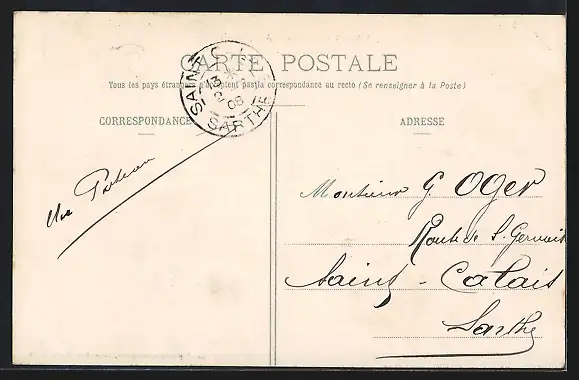 CARTE POSTALE
Tous les pays étrangers n'acceptent pas la correspondance au recto (Se renseigner à la Poste)
SAINT-C
13
08
SARTHE
CORRESPONDANCE
ADRESSE
Monsieur G. Oger
Route de S. Gervais
Saint-Calais
Sarthe